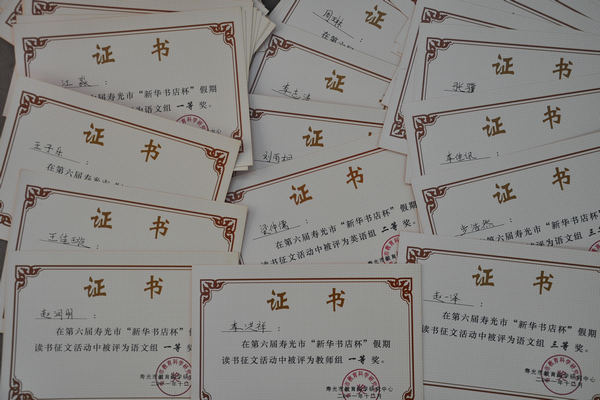 证书
江淼：
在第六届寿光市“新华书店杯”假期
读书征文活动中被评为语文组 一等 奖。
证书
周琳
在第六
证书
李志
证书
张骝
证书
王子乐：
在第六届寿光市
证书
刘
证书
李佳
证书
王佳
证书
梁仲儒：
在第六届寿光市“新华书店杯”假期
读书征文活动中被评为英语组 二等 奖。
证书
步浩然：
在第六届寿光市“新华书店杯”
读书征文活动中被评为语文组 三
证书
赵润朋：
在第六届寿光市“新华书店杯”假期
读书征文活动中被评为语文组 一等 奖。
寿光市教育科学研究中心
二〇二一年十二月
证书
李洪祥：
在第六届寿光市“新华书店杯”假期
读书征文活动中被评为教师组 一等 奖。
寿光市教育科学研究中心
证书
赵一泽：
在第六届寿光市“新华书店杯”假期
读书征文活动中被评为语文组 三等 奖。
寿光市教育科学研究中心